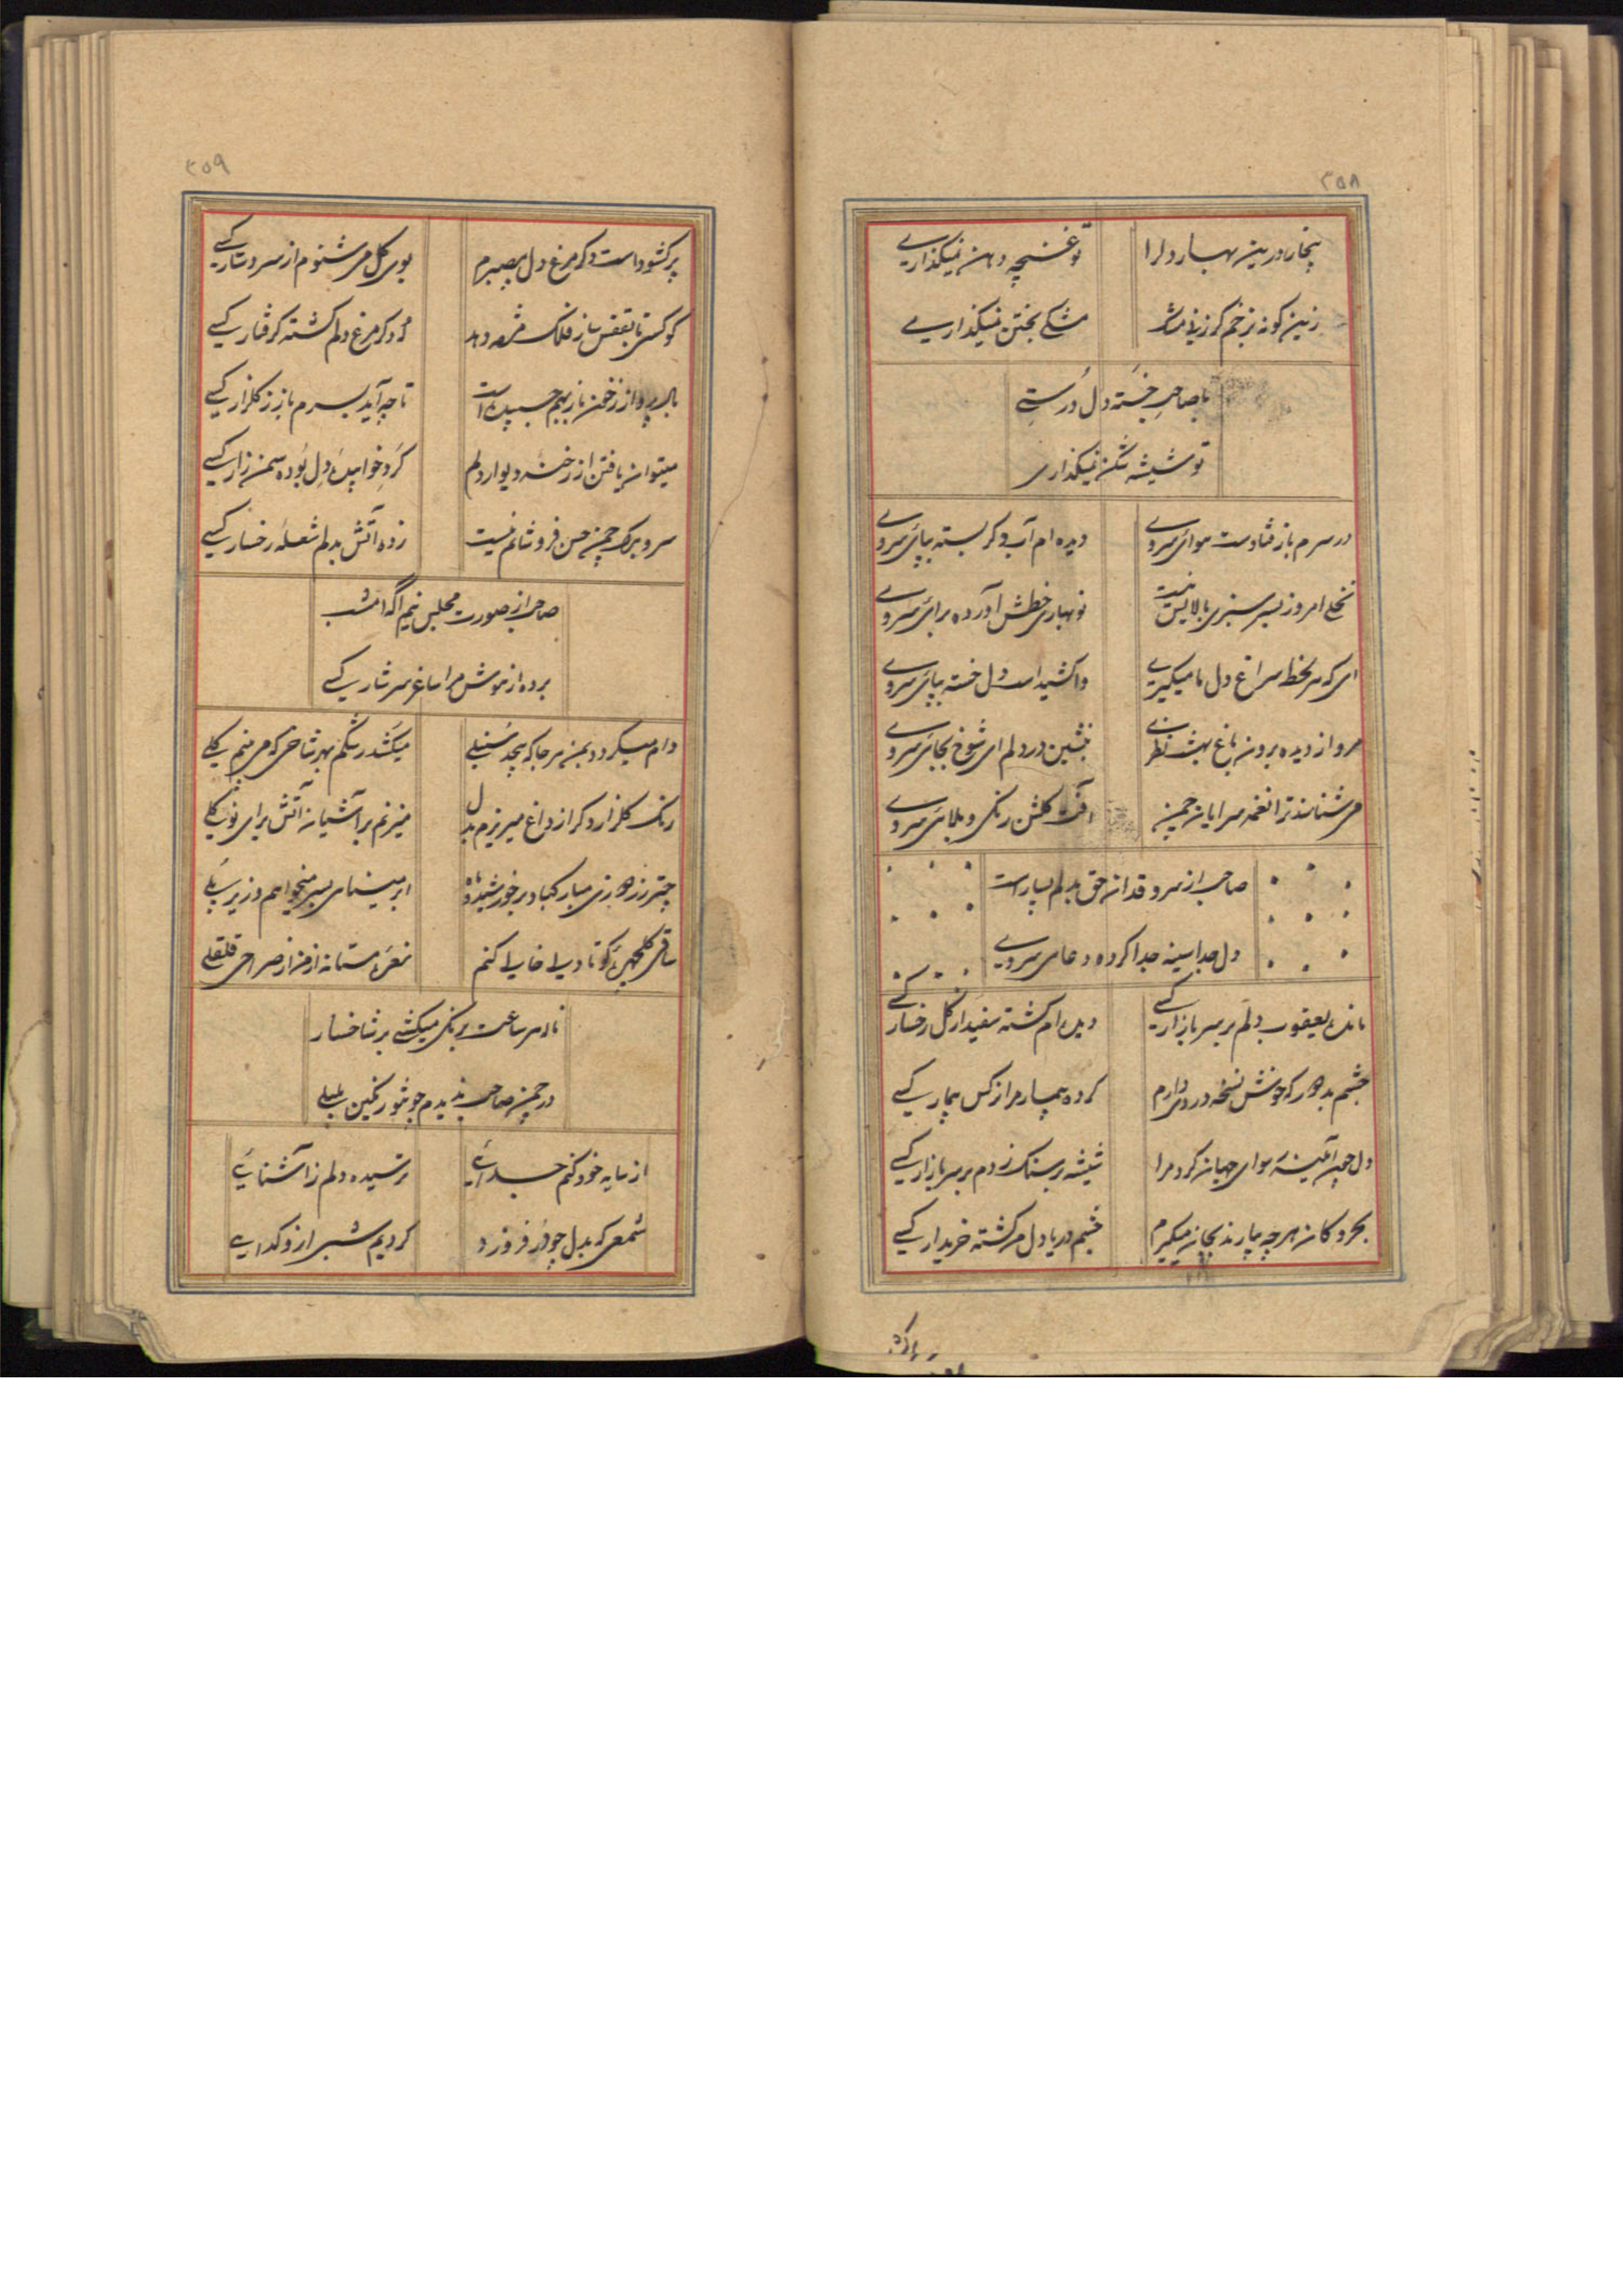 ۲۵۸
درین بهار دلرا
تو غنچه دهن نمیگذاری
زین کونه بزخم
مشکی بختن نمیگذاری
با صاحب خسته دل درستی
تو شیشه شکن نمیگذاری
در سرم باز فتادست هوای سروی
دیده ام آب و کر بسته بپای سروی
نخلی امروز بسر سبزی بالایش نیست
نوبهاری خطش آورده برای سروی
ای که هر لحظه سراغ دل ما میکیری
واکشیداست دل خسته بپای سروی
مرو از دیده برون باغ بهشت نظری
بنشین در دلم ای شوخ بجای سروی
می شناسند ترا نغمه سرایان چمن
آفت کلشن رنکی و بلای سروی
صاحب از سرو قدان حق بدلم بسیار است
دل جدا سینه جدا کرده دعای سروی
مانده یعقوب دلم بر سر بازار کسی
دیده ام کشته سفید از کل رخسار کسی
چشم بد دور که خوش نسخه دردی دارم
کرده بیمار مرا نرکس بیمار کسی
دل چون آئینه هوای جهان کرد مرا
شیشه بر سنک زدم بر سر بازار کسی
بحر و کان هر چه بیارند بجان میکیرم
چشم دریا دل من کشته خریدار کسی
۲۵۹
پر کشوداست دکر مرغ دل بیصبرم
بوی کل می شنوم از سر دستار کسی
کو کسی تا بقفس ساز فلک مژده دهد
که دکر مرغ دلم کشته کرفتار کسی
بال پرواز ز خون باز بهم چسپیداست
تا چه آید بسرم باز ز کلزار کسی
میتوان یافتن از رخنه دیوار دلم
کرد خوابیده دل بوده سمن زار کسی
سر و برک چمن حسن فروشانم نیست
زده آتش بدلم شعله رخسار کسی
صاحب از صورت مجلس نیم آکه امشب
برده از هوش مرا ساغر سرشار کسی
دام میکردد بمن هر جا که پیچد سنبلی
میکشد رشکم بهر شاخی که می بینم کلی
رنک کلزار دکر از داغ میریزم بدل
میزنم بر آشیان آتش برای نو کلی
چتر زر دوزی مبارکباد بر خورشید و ماه
ابر مینای بسر میخواهم و زیر پلی
ساقی کلچهره کو تا دیر را خالی کنم
نعره مستانه از من از صراحی قلقلی
ناله هر ساعت برنکی میکشی بر شاخسار
در چمن صاحب ندیدم چون تو رنکین بلبلی
از سایه خود کنم جدائی
ترسیده دلم ز آشنایی
شمعی که بدل چو در فروزد
کردیم شبی ازو کدایی